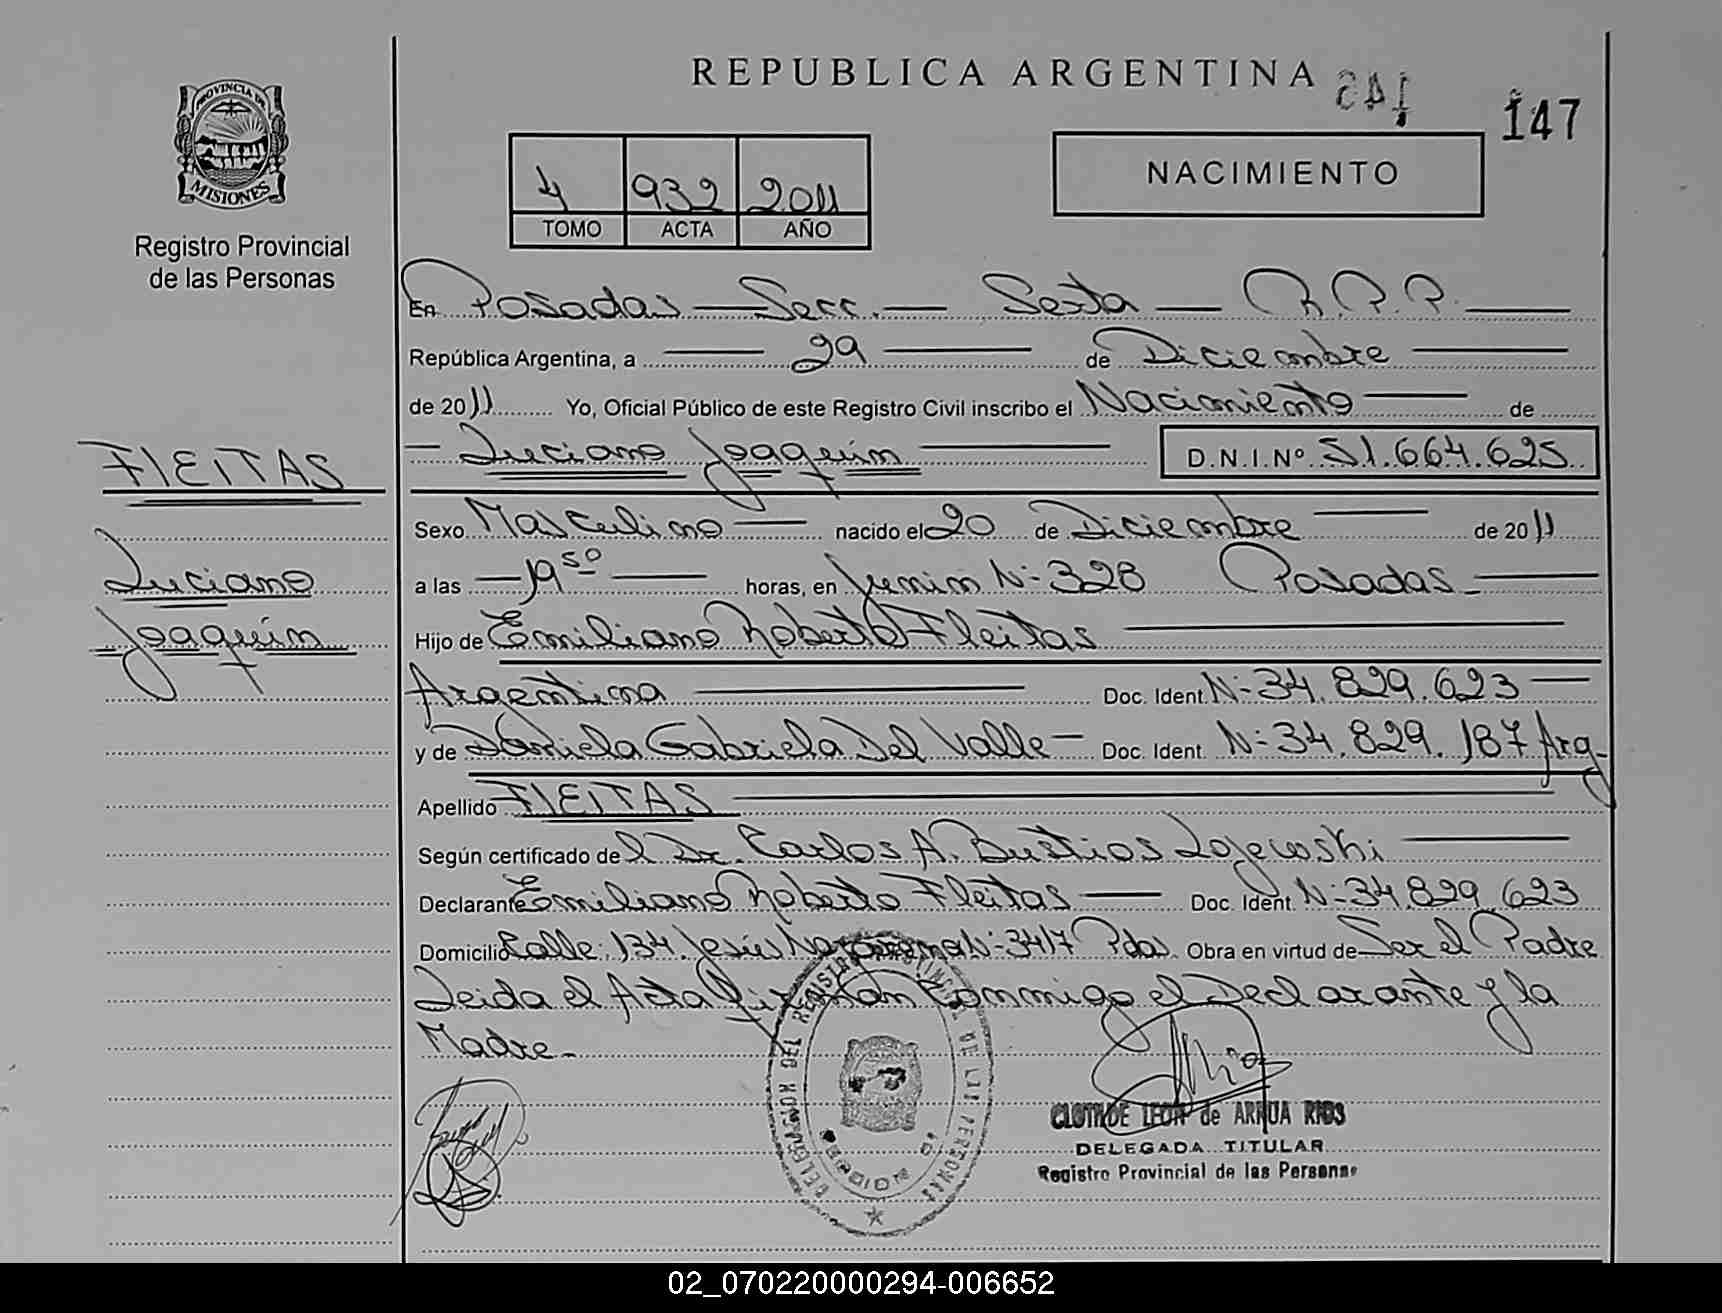 REPUBLICA ARGENTINA
147
PROVINCIA DE
MISIONES
Registro Provincial
de las Personas
4 932 2011
TOMO ACTA AÑO
NACIMIENTO
En Posadas Secc. Sexta R.P.P.
República Argentina, a 29 de Diciembre
de 2011 Yo, Oficial Público de este Registro Civil inscribo el Nacimiento de
Luciano Joaquín D.N.I.Nº 51.664.625
FLEITAS
Luciano
Joaquín
Sexo Masculino nacido el 20 de Diciembre de 2011
a las 19 50 horas, en Junin Nº 328 Posadas
Hijo de Emiliano Roberto Fleitas
Argentina Doc. Ident. Nº 34.829.623
y de Daniela Gabriela Del Valle Doc. Ident. Nº 34.829.187 Arg
Apellido FLEITAS
Según certificado del Dr. Carlos A. Bustios
Declarante Emiliano Roberto Fleitas Doc. Ident. Nº 34.829.623
Domicilio Calle: 134. Jesús Nº 3417 Pdas. Obra en virtud de Ser el Padre
Leida el Acta firman Conmigo el Declarante y la
Madre.
CLOTILDE LEON de ARRUA RIOS
DELEGADA TITULAR
Registro Provincial de las Personas
02_070220000294-006652